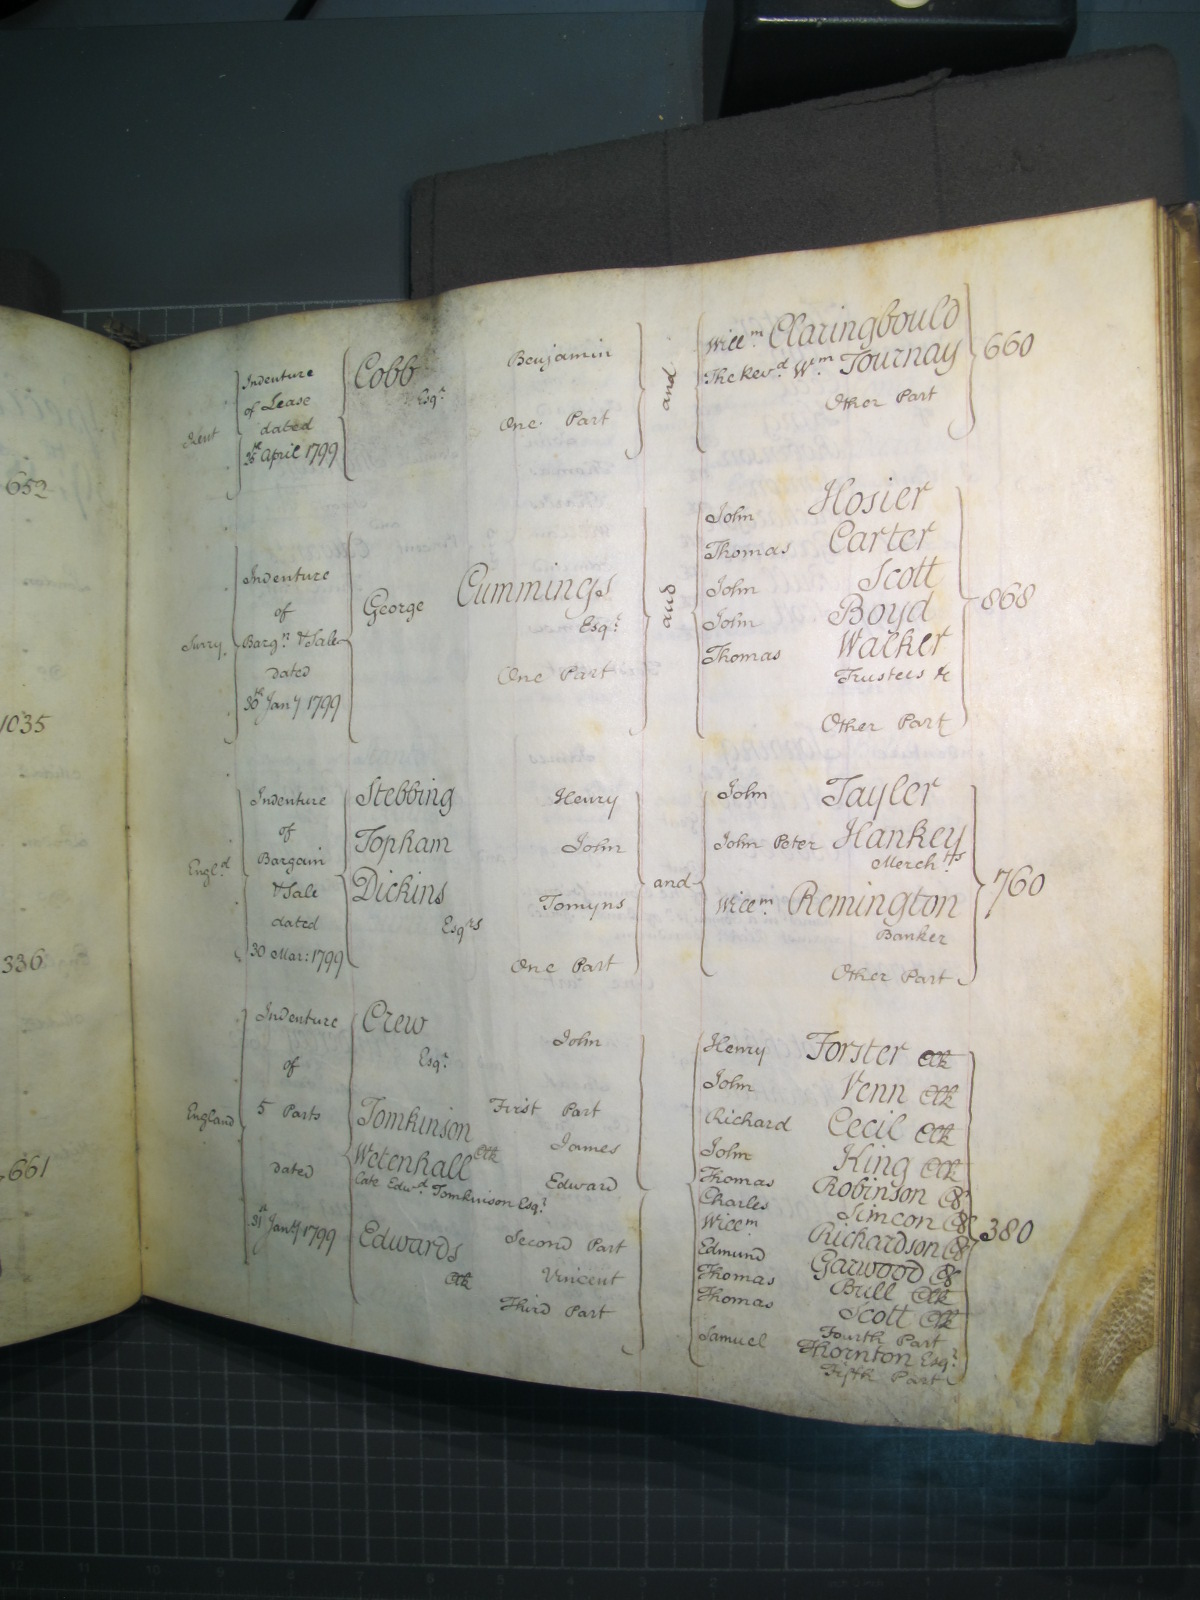 652
1035
336
661
Kent
Indenture
of Lease
dated
26th April 1799
Cobb Benjamin
Esqr
One Part
and
Willm Claringbould
The Revd Wm Tournay
Other Part
660
Surry
Indenture
of
Bargn & Sale
dated
30th Jany 1799
George Cummings
Esqr
One Part
and
John Hosier
Thomas Carter
John Scott
John Boyd
Thomas Walker
Trustees &c
Other Part
868
Engld
Indenture
of
Bargain
& Sale
dated
30 Mar: 1799
Stebbing Henry
Topham John
Dickins Tomyns
Esqrs
One Part
and
John Tayler
John Peter Hankey
Merchts
Willm Remington
Banker
Other Part
760
England
Indenture
of
5 Parts
dated
31st Jany 1799
Crew John
Esqr
First Part
Tomkinson James
Wetenhall Clk Edward
late Edwd Tomkinson Esqr
Second Part
Edwards Vincent
Clk
Third Part
Henry Forster Clk
John Venn Clk
Richard Cecil Clk
John King Clk
Thomas Robinson
Charles Simeon
Willm Richardson
Edmund Garwood
Thomas Bull Clk
Thomas Scott Clk
Fourth Part
Samuel Thornton Esqr
Fifth Part
380